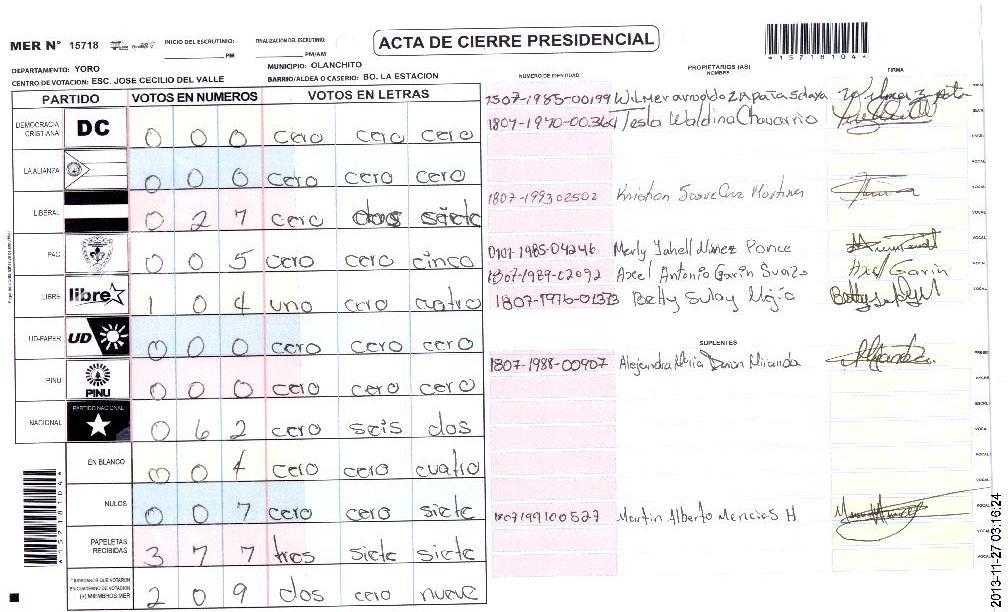 MER N° 15718 INICIO DEL ESCRUTINIO: PM FINALIZACION DEL ESCRUTINIO: PM/AM
ACTA DE CIERRE PRESIDENCIAL
*15718104*
DEPARTAMENTO: YORO MUNICIPIO: OLANCHITO
CENTRO DE VOTACION: ESC. JOSE CECILIO DEL VALLE BARRIO/ALDEA O CASERIO: BO. LA ESTACION
NUMERO DE IDENTIDAD PROPIETARIOS (AS) NOMBRE FIRMA
PARTIDO VOTOS EN NUMEROS VOTOS EN LETRAS
DEMOCRACIA CRISTIANA DC 0 0 0 cero cero cero
LA ALIANZA 0 0 0 cero cero cero
LIBERAL 0 2 7 cero dos siete
PAC 0 0 5 cero cero cinco
LIBRE libre 1 0 4 uno cero cuatro
UD-FAPER UD 0 0 0 cero cero cero
PINU PINU 0 0 0 cero cero cero
NACIONAL PARTIDO NACIONAL 0 6 2 cero seis dos
EN BLANCO 0 0 4 cero cero cuatro
NULOS 0 0 7 cero cero siete
PAPELETAS RECIBIDAS 3 7 7 tres siete siete
CIUDADANOS QUE VOTARON EN CUADERNO DE VOTACION (+) MIEMBROS MER 2 0 9 dos cero nueve
1507-1985-00199 Wilmer arnoldo Zapata Zelaya
1807-1970-00364 Tesla Waldina Chavarria
1807-199302502 Kristian Cruz Martinez
0101-1985-04246 Merly Yahell Nunez Ponce
1807-1989-02092 Axel Antonio Garin Suazo Axel Garin
1807-1976-01373 Betty Sulay Mejía
SUPLENTES
1807-1988-00907 Alejandra Maria Duron Miranda
1807199100527 Martin Alberto Mencias H
*15718104*
2013-11-27 03:16:24